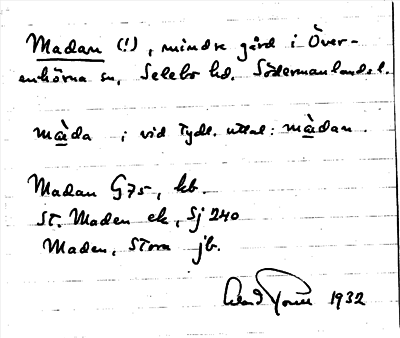 Madan (!), mindre gård i Över-
enhörna sn, Selebo hd. Södermanlands l.
màda ; vid tydl. uttal: màdan.
Madan G75, kb.
St. Maden ek, Sj 240
Maden, Stora jb.
1932